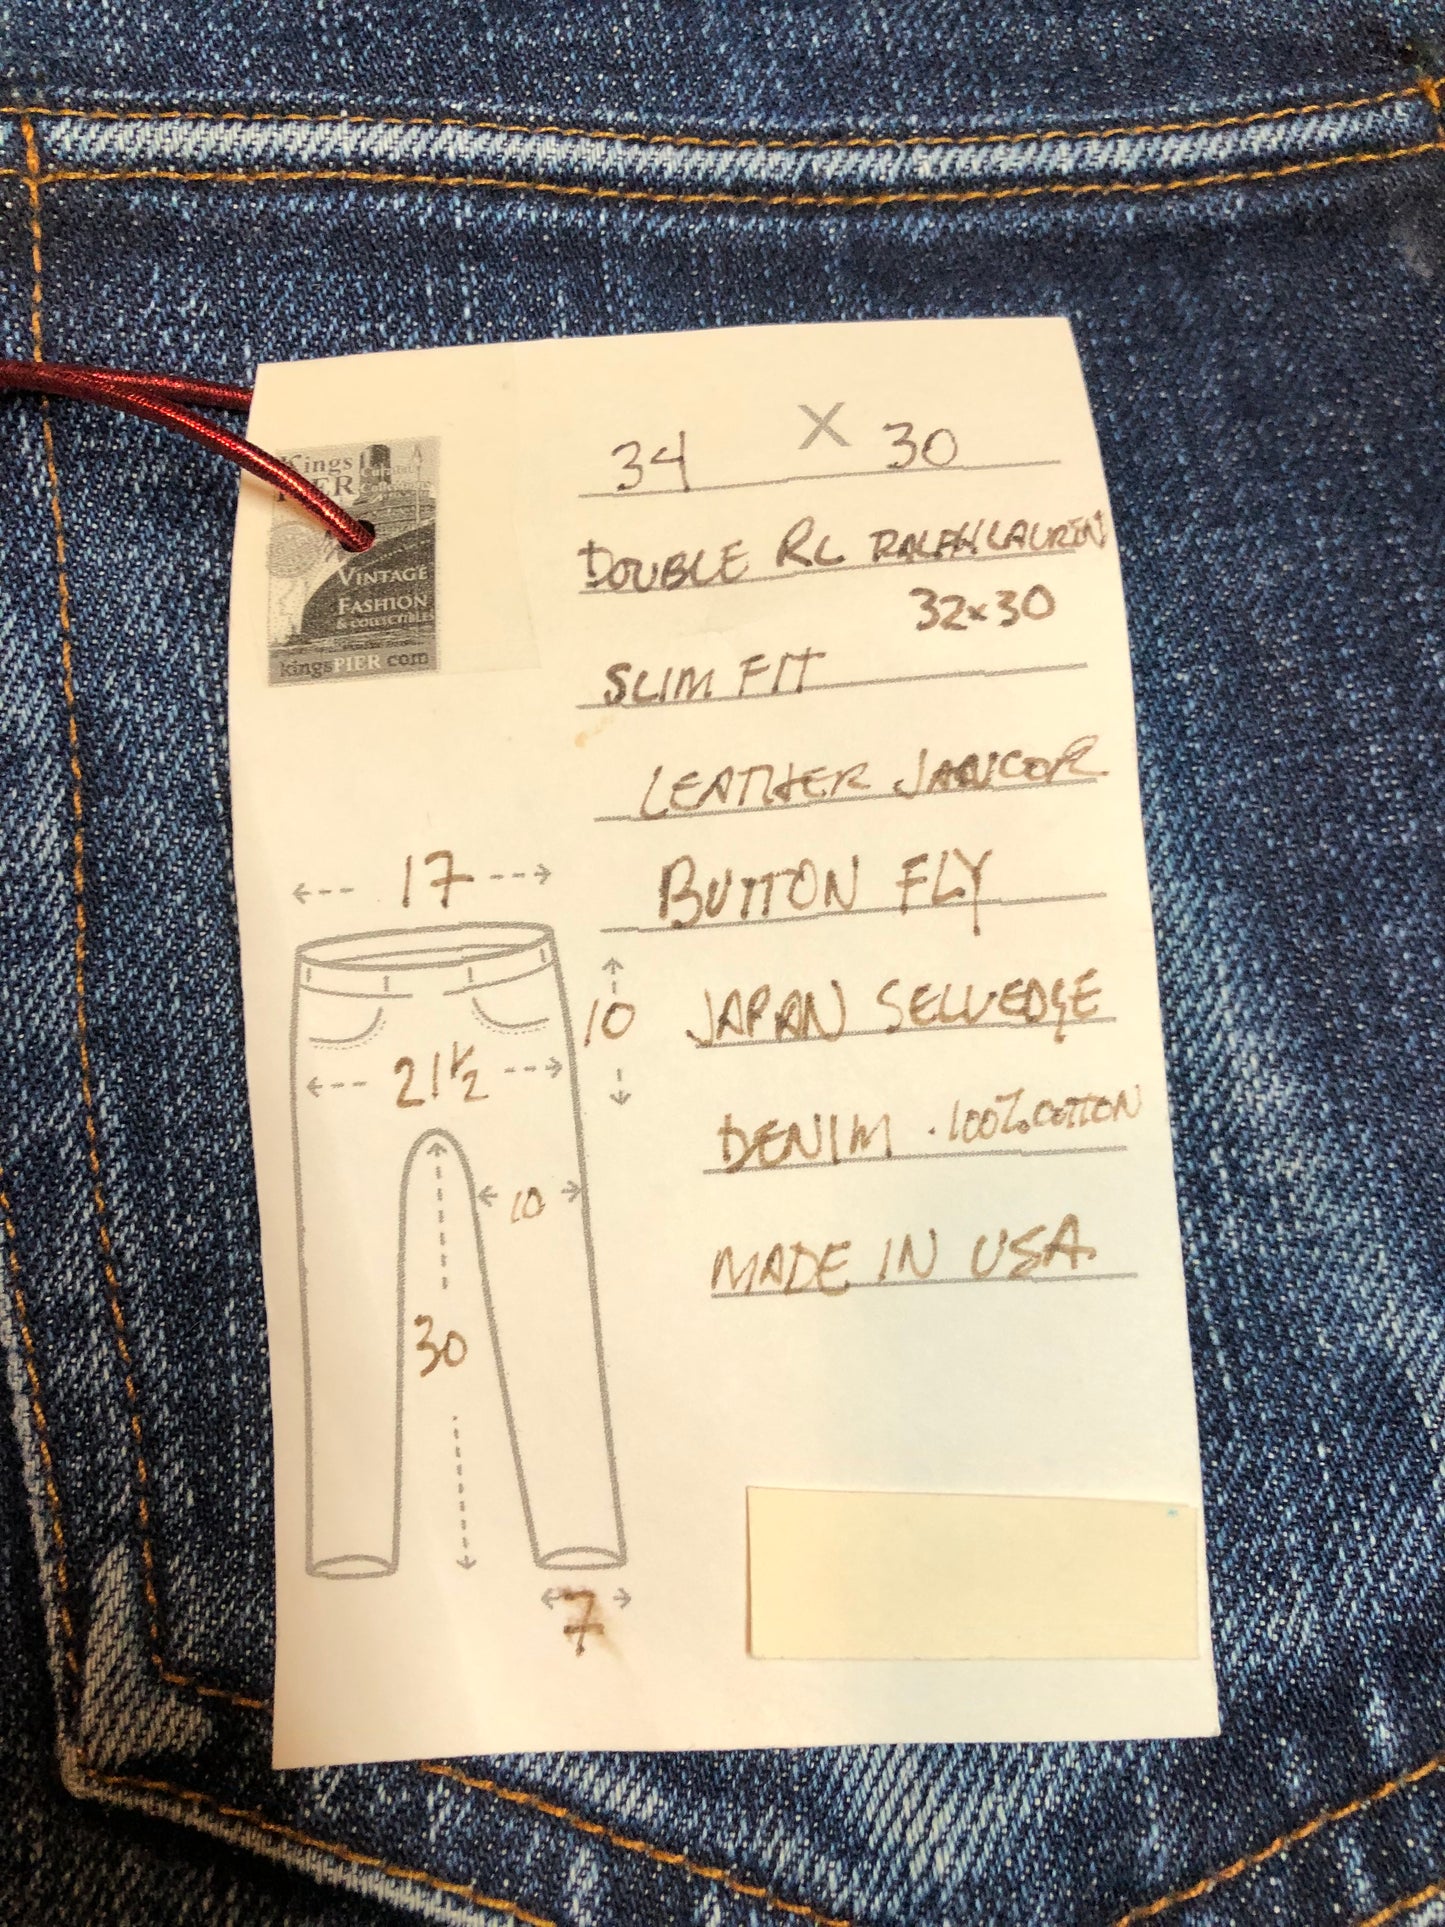 34 X 30
Kings
PIER
VINTAGE
FASHION
& COLLECTIBLES
kingsPIER com
DOUBLE RL RALPH LAUREN
32x30
SLIM FIT
LEATHER
BUTTON FLY
JAPAN SELVEDGE
DENIM . 100% COTTON
MADE IN USA.
17
10
21 1/2
10
30
7